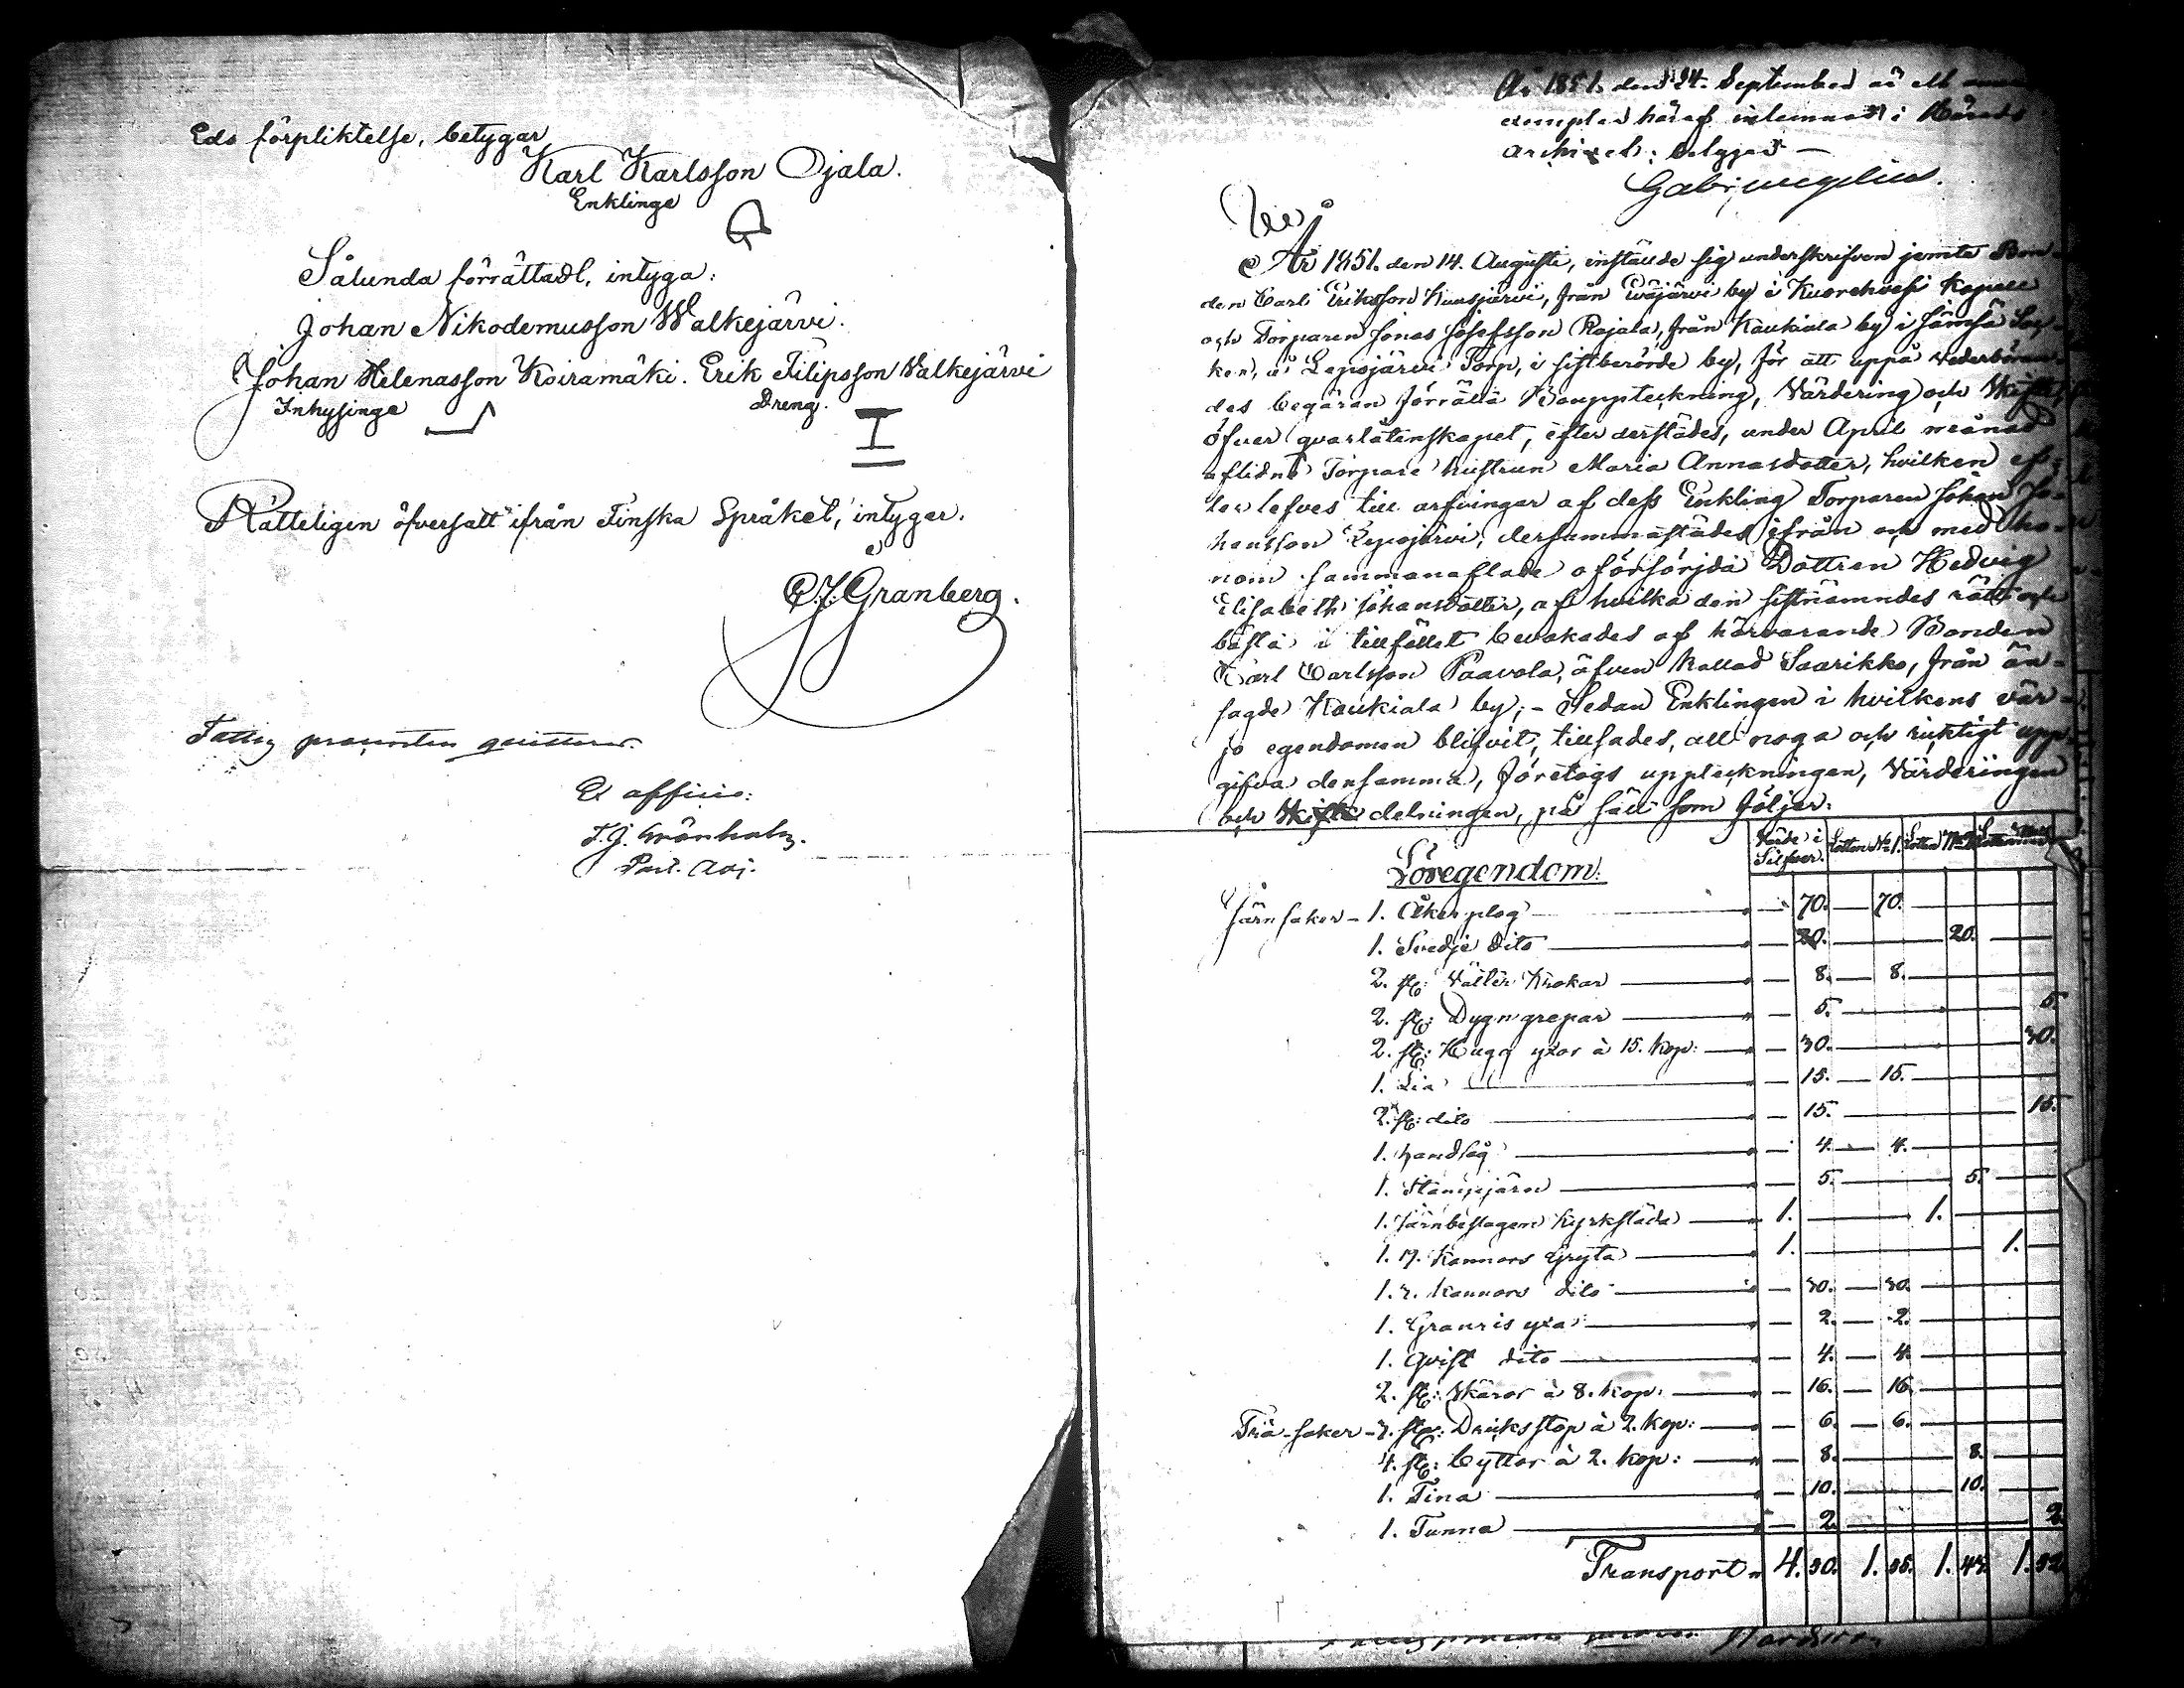 Eds förpliktelse, betygar
Karl Karlsson Ojala.
Enklinge
Sålunda förrättadt, intyga:
Johan Nikodemusson Walkejärvi.
Johan Helenasson Koiramäki. Erik Filipsson Walkejärvi
Inhysinge Dreng.
Rätteligen öfversatt ifrån Finska Språket, intygar.
C. J. Granberg.
Fattig procenten quitteras.
Ex officio:
Past. Adj.
År 1851. den 24. September är ett
exemplar häraf inlemnadt i Härads
archivet; betygad
År 1851. den 14. Augusti, instälde sig underskrifven jemte Bon-
den Carl Eriksson Kuusjärvi, från Eväjärvi by i Kuorehvesi Kapell
och Torparen Jonas Josefsson Rajala, från Kaukiala by i Jämsä Soc-
ken, å Lepisjärvi Torp, i sistberörde by, för att uppå vederböran-
des begäran förrätta Bouppteckning, Värdering och Skifte,
öfver qvarlåtenskapet, efter derstädes, under April månad
aflidne Torpare hustrun Maria Annasdotter, hvilken ef-
terlefves till arfvingar af dess Enkling Torparen Johan Jo-
hansson Lepisjärvi, dersammastädes ifrån och med ho-
nom sammanaflade oförsörjda Dottren Hedvig
Elisabeth Johansdotter, af hvilka den sistnämndes rätt och
bästa i tillfället bevakades af härvarande Bonden
Karl Carlsson Paavola, äfven kallad Saarikko, från än-
sagde Kaukiala by; - Sedan Enklingen i hvilkens vär-
jo egendomen blifvit, tillsades, att noga och riktigt upp-
gifva densamma, företogs uppteckningen, Värderingen
och Skifte delningen, på sätt som följer:
Lösegendom. Värde i Silfver. Lotten No 1. Lotten No 2.
Järnsaker - 1. Åker plog — 70. — 70.
1. Svedje dito — 20. — 20.
2. st: Välter Krokar — 8. — 8.
2. st: Dyngrepar — 5. — 5
2. st: Hugg yxor à 15. kop: — 30. — 30.
1. Lia — 15. — 15.
2. st: dito — 15. — 15.
1. handsåg — 4. — 4.
1. Stämjärn — 5. — 5.
1. Järnbeslagen Kyrksläda — 1. — 1.
1. 17. Kannors Gryta — 1. — 1.
1. 3. Kannors dito — 30. — 30.
1. Granris yxa — 2. — 2.
1. Qvist dito — 4. — 4.
2. st: Skäror à 8. kop: — 16. — 16
Trä-saker - 3. st: Dricksstop à 2. kop: — 6. — 6.
4. st: Byttor à 2. kop: — 8. — 8.
1. Tina — 10. — 10.
1. Tunna — 2. — 2.
Transport 4. 30. 1. 35. 1. 43. 1. 52